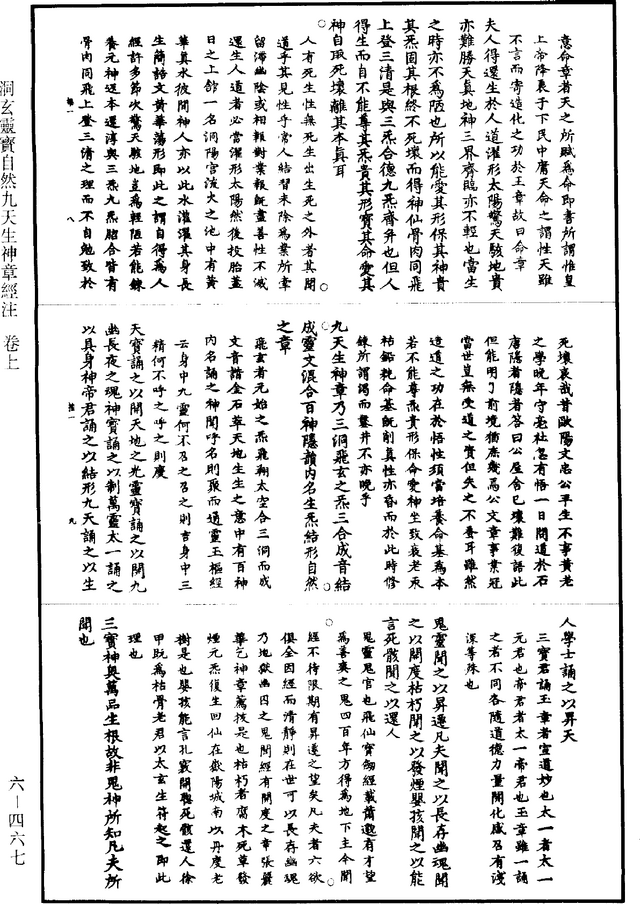 洞玄靈寶自然九天生神章經注　卷上
六—四六七
意命章者天之所賦爲命即書所謂惟皇
上帝降衷于下民中庸天命之謂性天雖
不言而寄造化之功於王章故曰命章
夫人得還生於人道濯形太陽驚天駭地貴
亦難勝天真地神三界齊臨亦不輕也當生
之時亦不爲陋也所以能愛其形保其神貴
其炁固其根終不死壞而得神仙骨肉同飛
上登三清是與三炁合德九炁齊并也但人
得生而自不能尊其炁貴其形寶其命愛其
神自取死壞離其本真耳
人有死生性無死生出生死之外者其聞
道乎其見性乎常人結習未除爲業所牽
留滯幽陰或相報對業報旣盡善性不滅
還生人道者必當濯形太陽然後投胎蓋
日之上館一名洞陽宮流火之池中有黃
華真水彼間神人亦以此水灌濯其身長
生簡語文黃華蕩形即此之謂自得爲人
經許多節次驚天駭地豈爲輕陋若能鍊
養元神返本還淳與三炁九炁脗合皆有
骨肉同飛上登三清之理而不自勉致於
死壞哀哉昔歐陽文忠公平生不事黃老
之學晚年守亳社忽有悟一日問道於石
唐隱者隱者答曰公屋舍已壞難復語此
但能明了前境猶庶幾焉公文章事業冠
當世豈無受道之質但失之不蚤耳雖然
造道之功在於悟性須當培養命基爲本
若不能尊炁貴形保命愛神坐致衰老汞
枯鉛耗命基旣削真性亦昏而於此時修
鍊所謂渴而鑿井不亦晚乎
九天生神章乃三洞飛玄之炁三合成音結
成靈文混合百神隱韻內名生炁結形自然
之章
飛玄者元始之炁飛翔太空合三洞而成
文音諧金石草天地生生之意中有百神
內名誦之神聞呼名則聚而通靈玉樞經
云身中九靈何不召之召之則吉身中三
精何不呼之呼之則慶
天寶誦之以開天地之光靈寶誦之以開九
幽長夜之魂神寶誦之以制萬靈太一誦之
以具身神帝君誦之以結形九天誦之以生
人學士誦之以昇天
三寶君誦玉章者宣道妙也太一者太一
元君也帝君者太一帝君也玉章雖一誦
之者不同各隨道德力量開化感召有淺
深等殊也
鬼靈聞之以昇遷凡夫聞之以長存幽魂聞
之以開度枯朽聞之以發煙嬰孩聞之以能
言死骸聞之以還人
鬼靈鬼官也飛仙寶劒經載蕭邈有才望
爲善爽之鬼四百年方得爲地下主今聞
經不待限期有昇遷之望矣凡夫者六欲
俱全因經而清靜則在世可以長存幽魂
乃地獄幽囚之鬼聞經有開度之章張麗
華乞神章薦拔是也枯朽者腐木死草發
煙元炁復生回仙在嶽陽城南以丹度老
樹是也嬰孩能言扎竅開聰死骸還人徐
甲旣爲枯骨老君以太玄生符起之即此
理也
三寶神奧萬品生根故非鬼神所知凡夫所
聞也